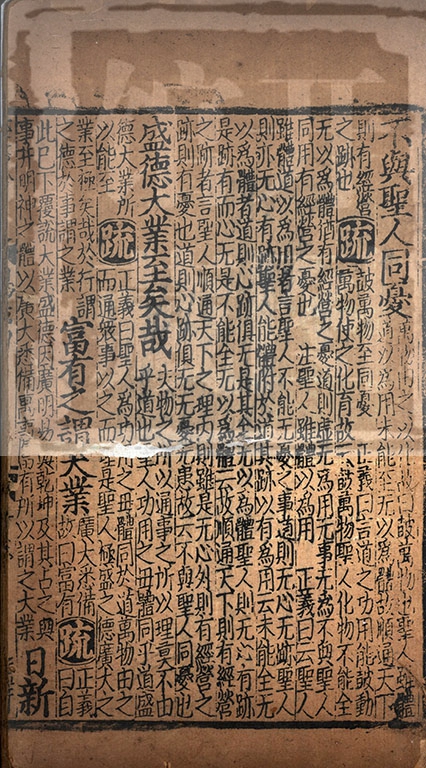 不與聖人同憂
萬物由之以化故曰鼓萬物也聖人雖體
道以爲用未能至无以爲體故順通天下
則有經營
之跡也
疏
鼓萬物至同憂　正義曰言道之功用能鼓動
萬物使之化育故云鼓萬物聖人化物不能全
无以爲體猶有經營之憂道則虛无爲用无事无爲不與聖人
同用有經營之憂也　注聖人雖體以爲用　正義曰云聖人
雖體道以爲用者言聖人不能无憂之事道則无心无跡聖人
則亦无心有跡聖人能體附於道其跡以有爲用云未能全无
以爲體者道則心跡俱无是其全无以爲體聖人則无心有跡
是跡有而心无是不能全无以爲體云故順通天下則有經營
之跡者言聖人順通天下之理内則雖是无心外則有經營之
跡則有憂也道則心跡俱无无憂无患故云不與聖人同憂也
盛德大業至矣哉
夫物之所以通事之所以理莫不由
乎道也聖人功用之母體同乎道盛
德大業所
以能至
疏
正義曰聖人爲功用之母體同於道萬物由之
而通衆事以之而理是聖人極盛之德廣大之
業至極矣哉於行謂
之德於事謂之業
富有之謂大業
廣大悉備
故曰富有
疏
正義
曰自
此已下覆說大業盛德因廣明易與乾坤及其占之與
事并明神之體以廣大悉備萬事富有所以謂之大業
日新